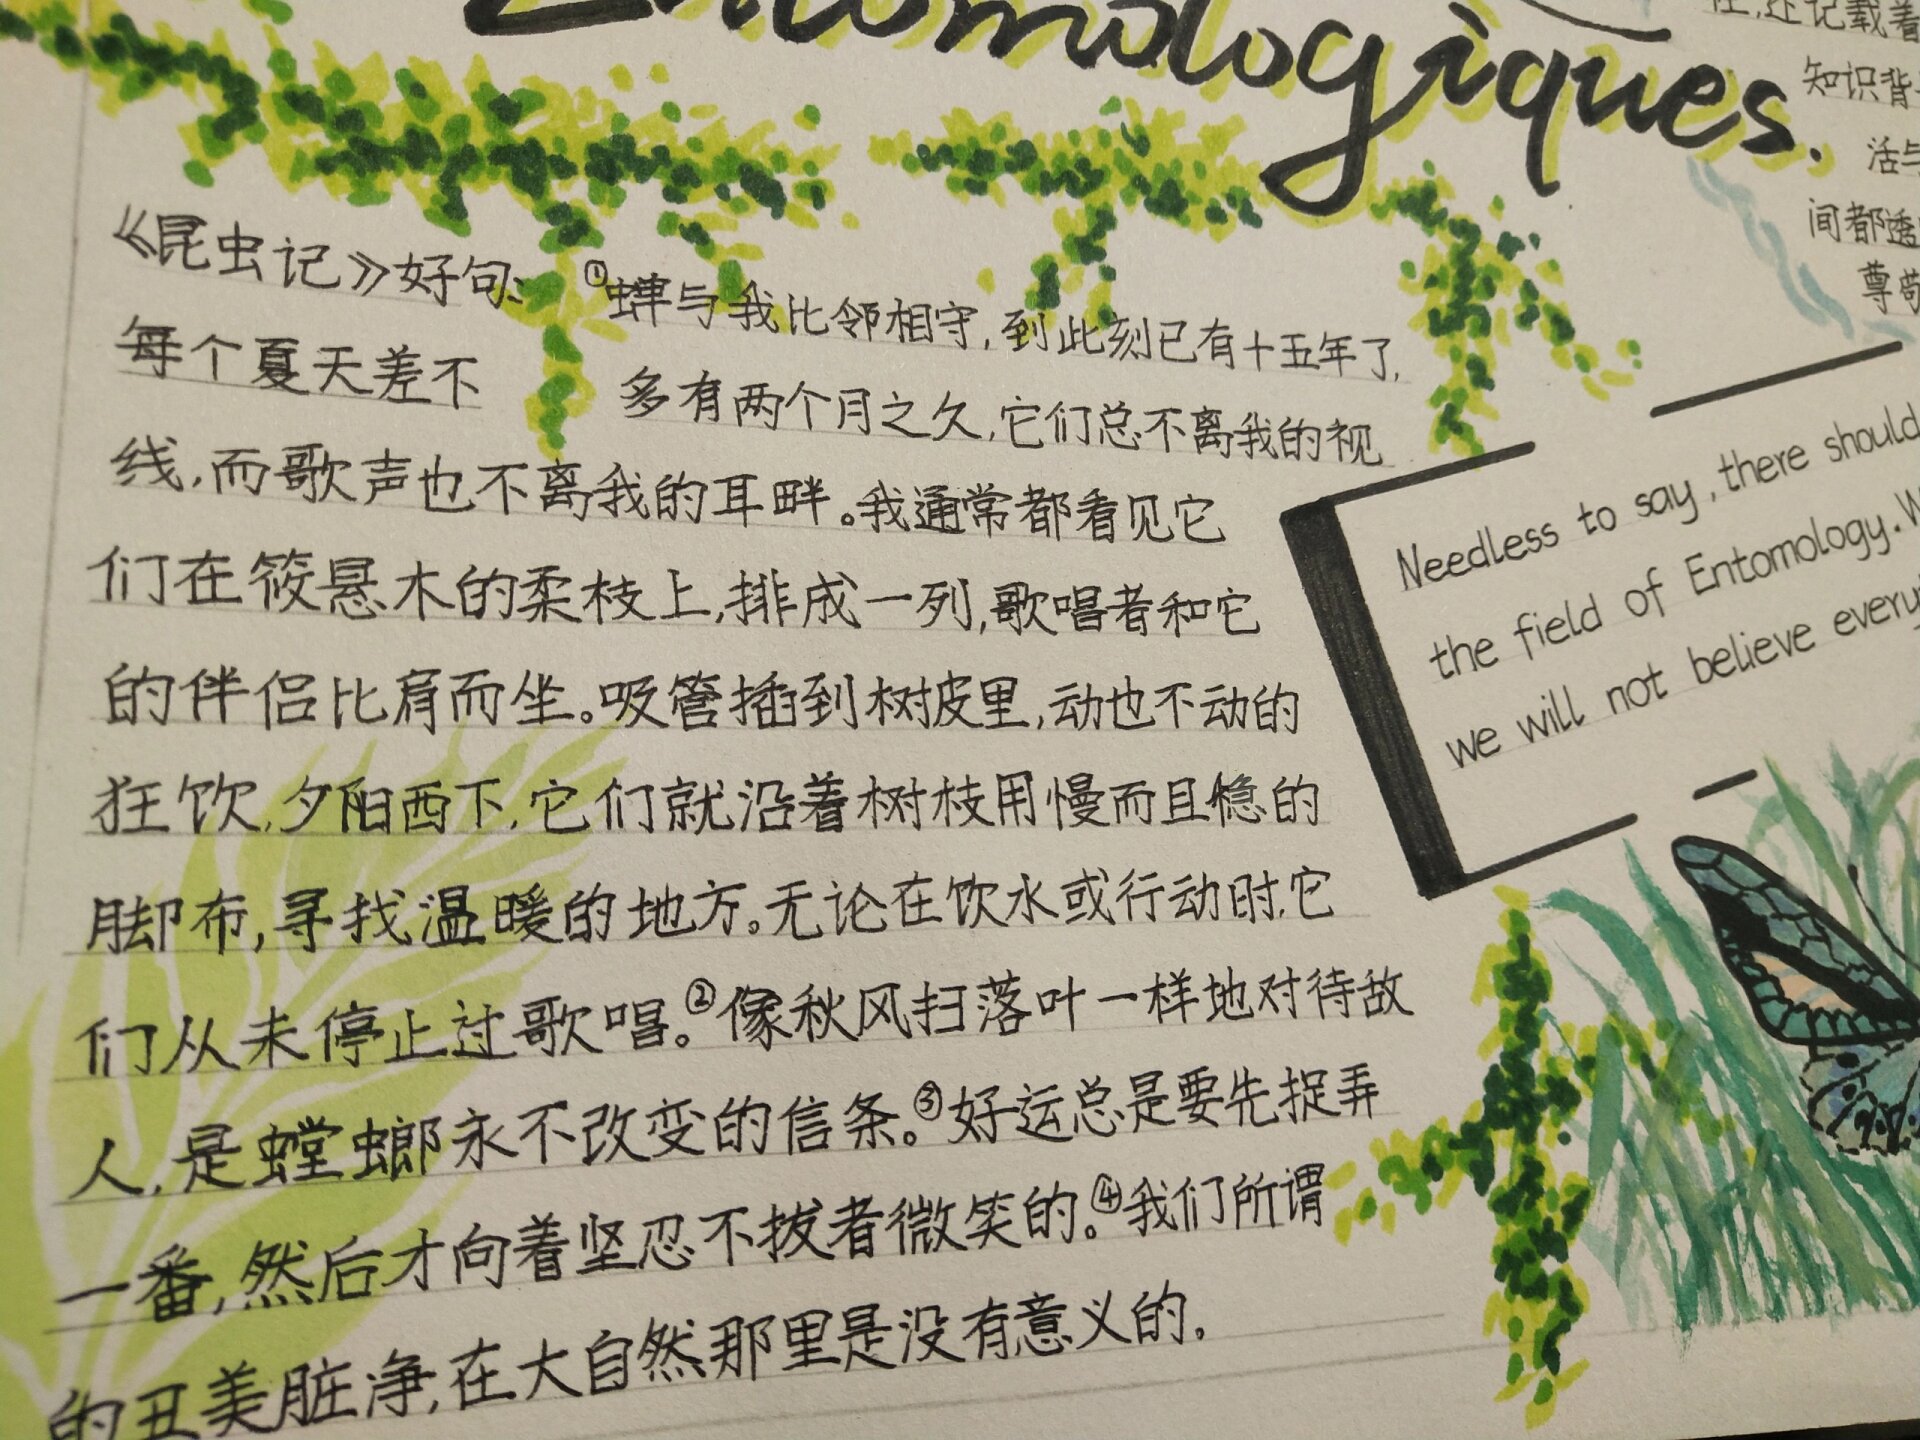 Entomologiques.
《昆虫记》好句: ①蝉与我比邻相守,到此刻已有十五年了,
每个夏天差不多有两个月之久,它们总不离我的视
线,而歌声也不离我的耳畔。我通常都看见它
们在筱悬木的柔枝上,排成一列,歌唱者和它
的伴侣比肩而坐。吸管插到树皮里,动也不动的
狂饮,夕阳西下,它们就沿着树枝用慢而且稳的
脚布,寻找温暖的地方。无论在饮水或行动时,它
们从未停止过歌唱。②像秋风扫落叶一样地对待敌
人,是螳螂永不改变的信条。③好运总是要先捉弄
一番,然后才向着坚忍不拔者微笑的。④我们所谓
的丑美脏净,在大自然那里是没有意义的.
还记载着
知识背
活与
间都透
尊敬
Needless to say, there should
the field of Entomology. W
we will not believe every